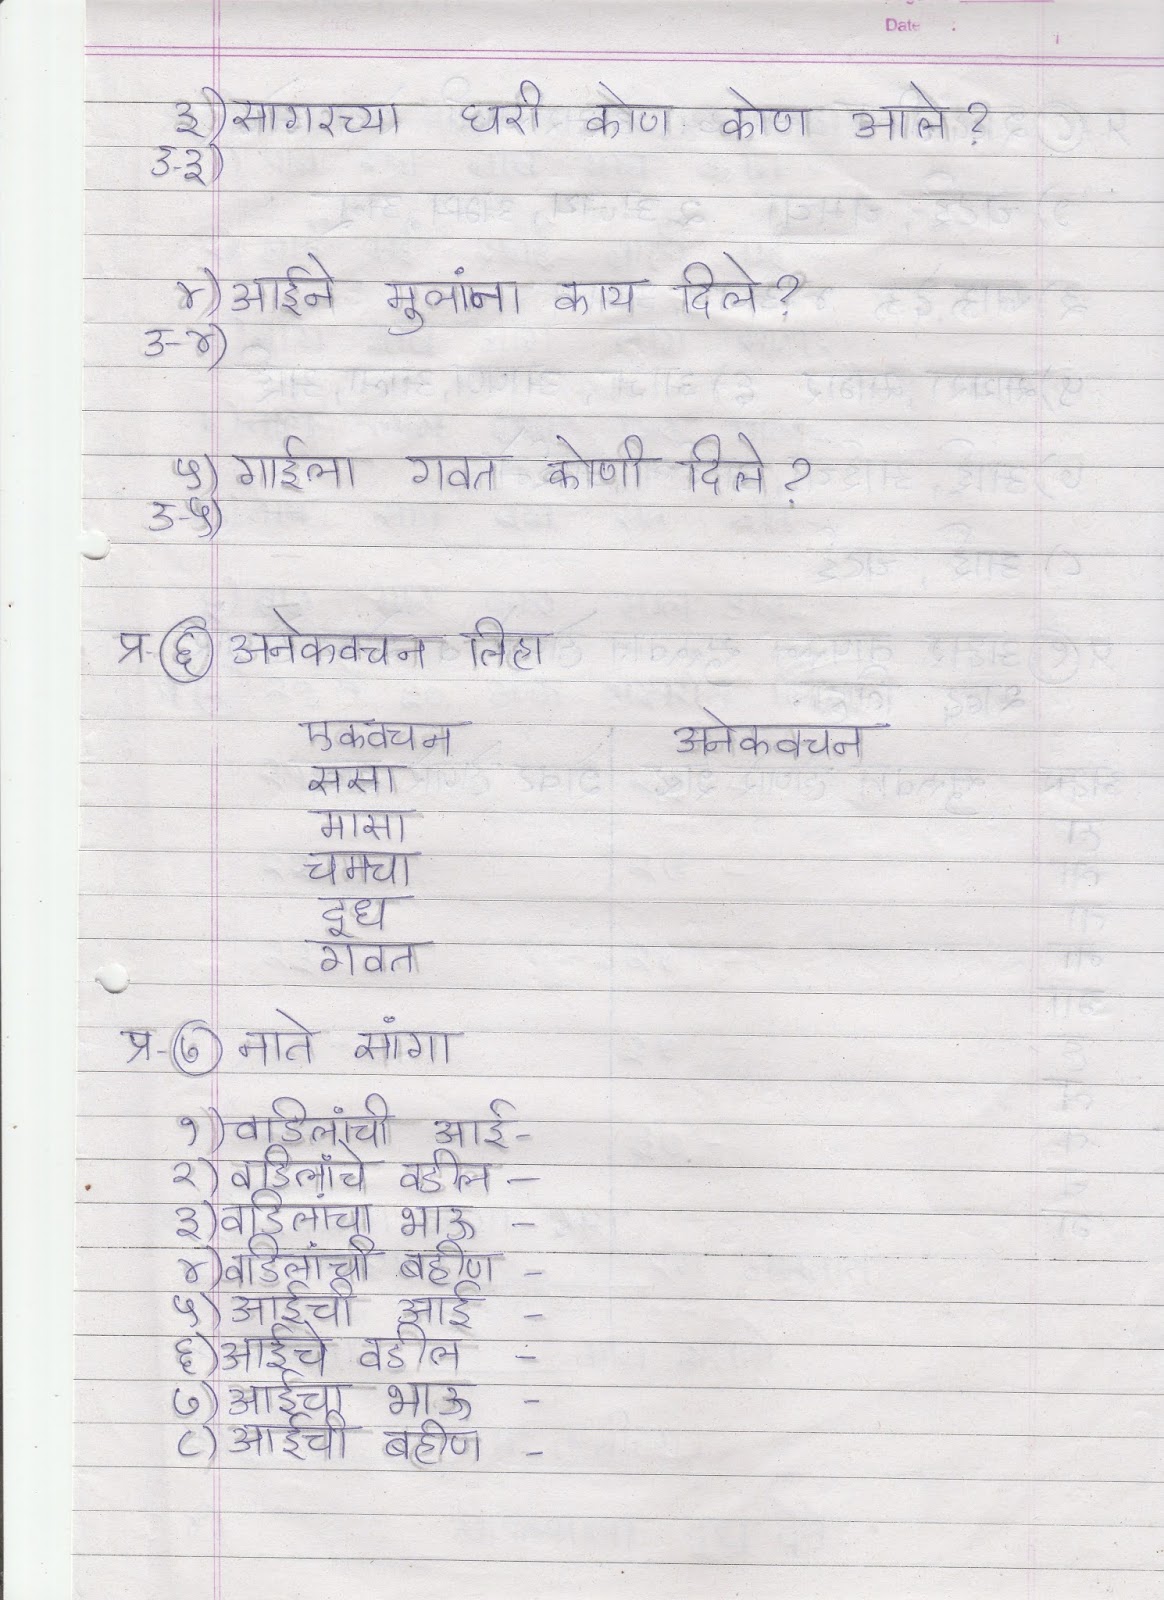 Date :
३) सागरच्या घरी कोण कोण आले?
उ-३)
४) आईने मुलांना काय दिले?
उ-४)
५) गाईला गवत कोणी दिले?
उ-५)
प्र-६) अनेकवचन लिहा
एकवचन अनेकवचन
ससा
मासा
चमचा
दूध
गवत
प्र-७) नाते सांगा
१) वडिलांची आई-
२) वडिलांचे वडील -
३) वडिलांचा भाऊ -
४) वडिलांची बहीण -
५) आईची आई -
६) आईचे वडील -
७) आईचा भाऊ -
८) आईची बहीण -